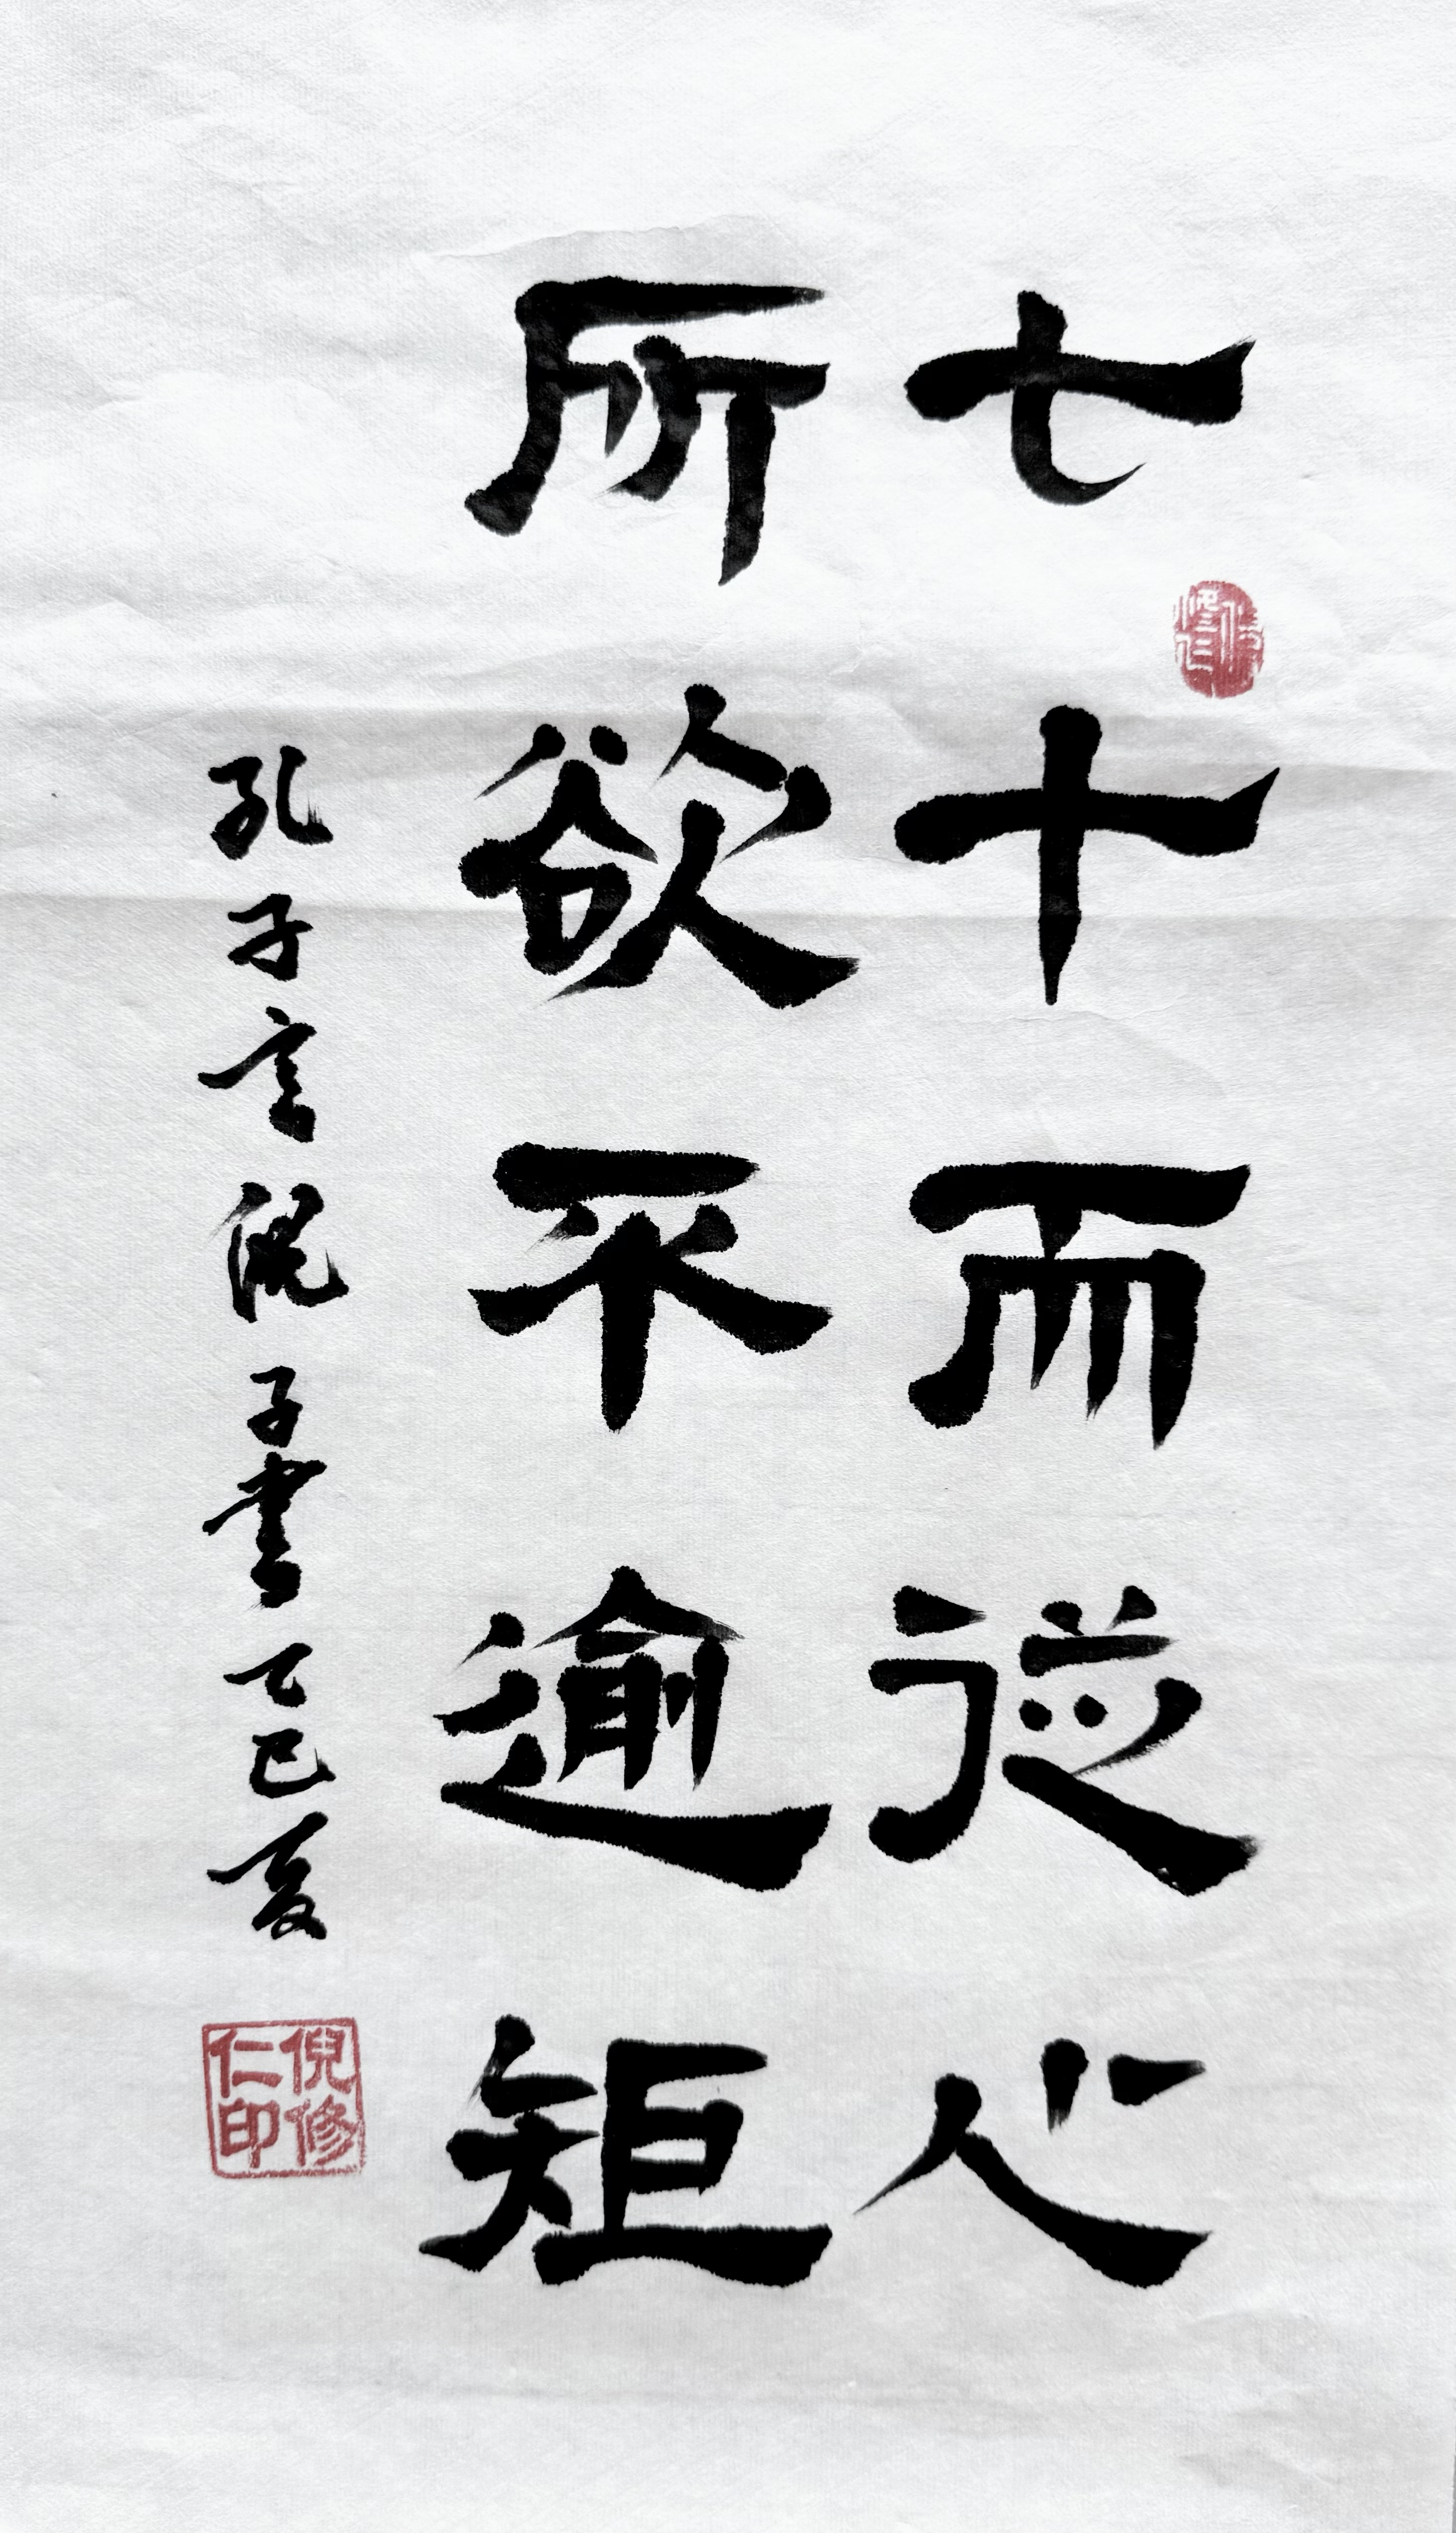 七十而從心
所欲不逾矩
孔子言倪子書乙巳夏
倪修仁印